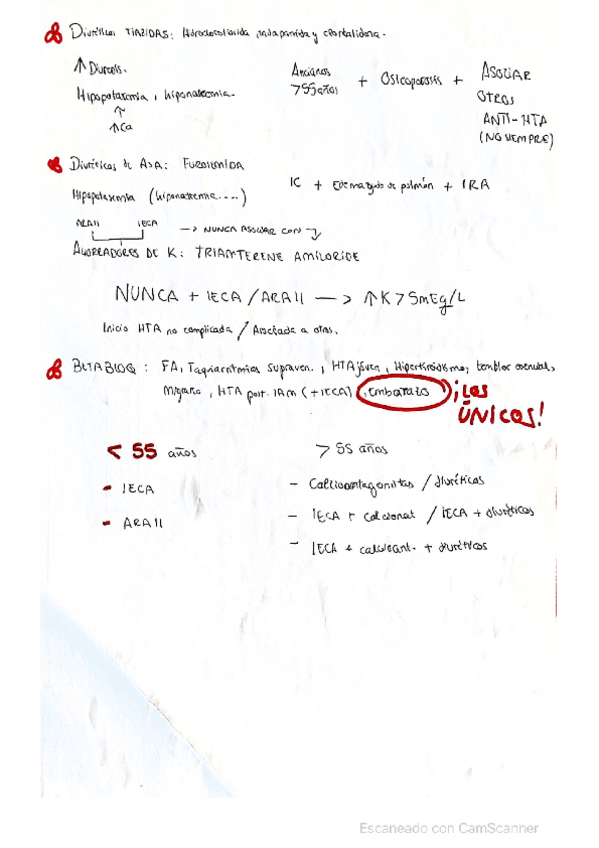 Diuréticos TIAZIDAS: Hidroclorotiacida, indapamida y clortalidona.
↑ Diuresis.
Hipopotasemia, hiponatremia.
↑
↑Ca
Ancianos >55 años + Osteoporosis + ASOCIAR OTROS ANTI-HTA (NO SIEMPRE)
Diuréticos de ASA: FUROSEMIDA
Hipopotasemia (hiponatremia....)
IC + Edema agudo de pulmón + IRA
ARAII IECA → NUNCA ASOCIAR CON
AHORRADORES DE K: TRIAMTERENE AMILORIDE
NUNCA + IECA/ARAII → ↑K>5mEq/L
Inicio HTA no complicada / Asociada a otras.
BETABLOQ: FA, Taquiarritmias supraven., HTA jóven, Hipertiroidismo, temblor esencial,
Migraña, HTA post. IAM (+IECA), embarazo ¡LOS ÚNICOS!
< 55 años
- IECA
- ARAII
> 55 años
- Calcioantagonistas / diuréticos
- IECA + calcioant / IECA + diuréticos
- IECA + calcioant. + diuréticos
Escaneado con CamScanner